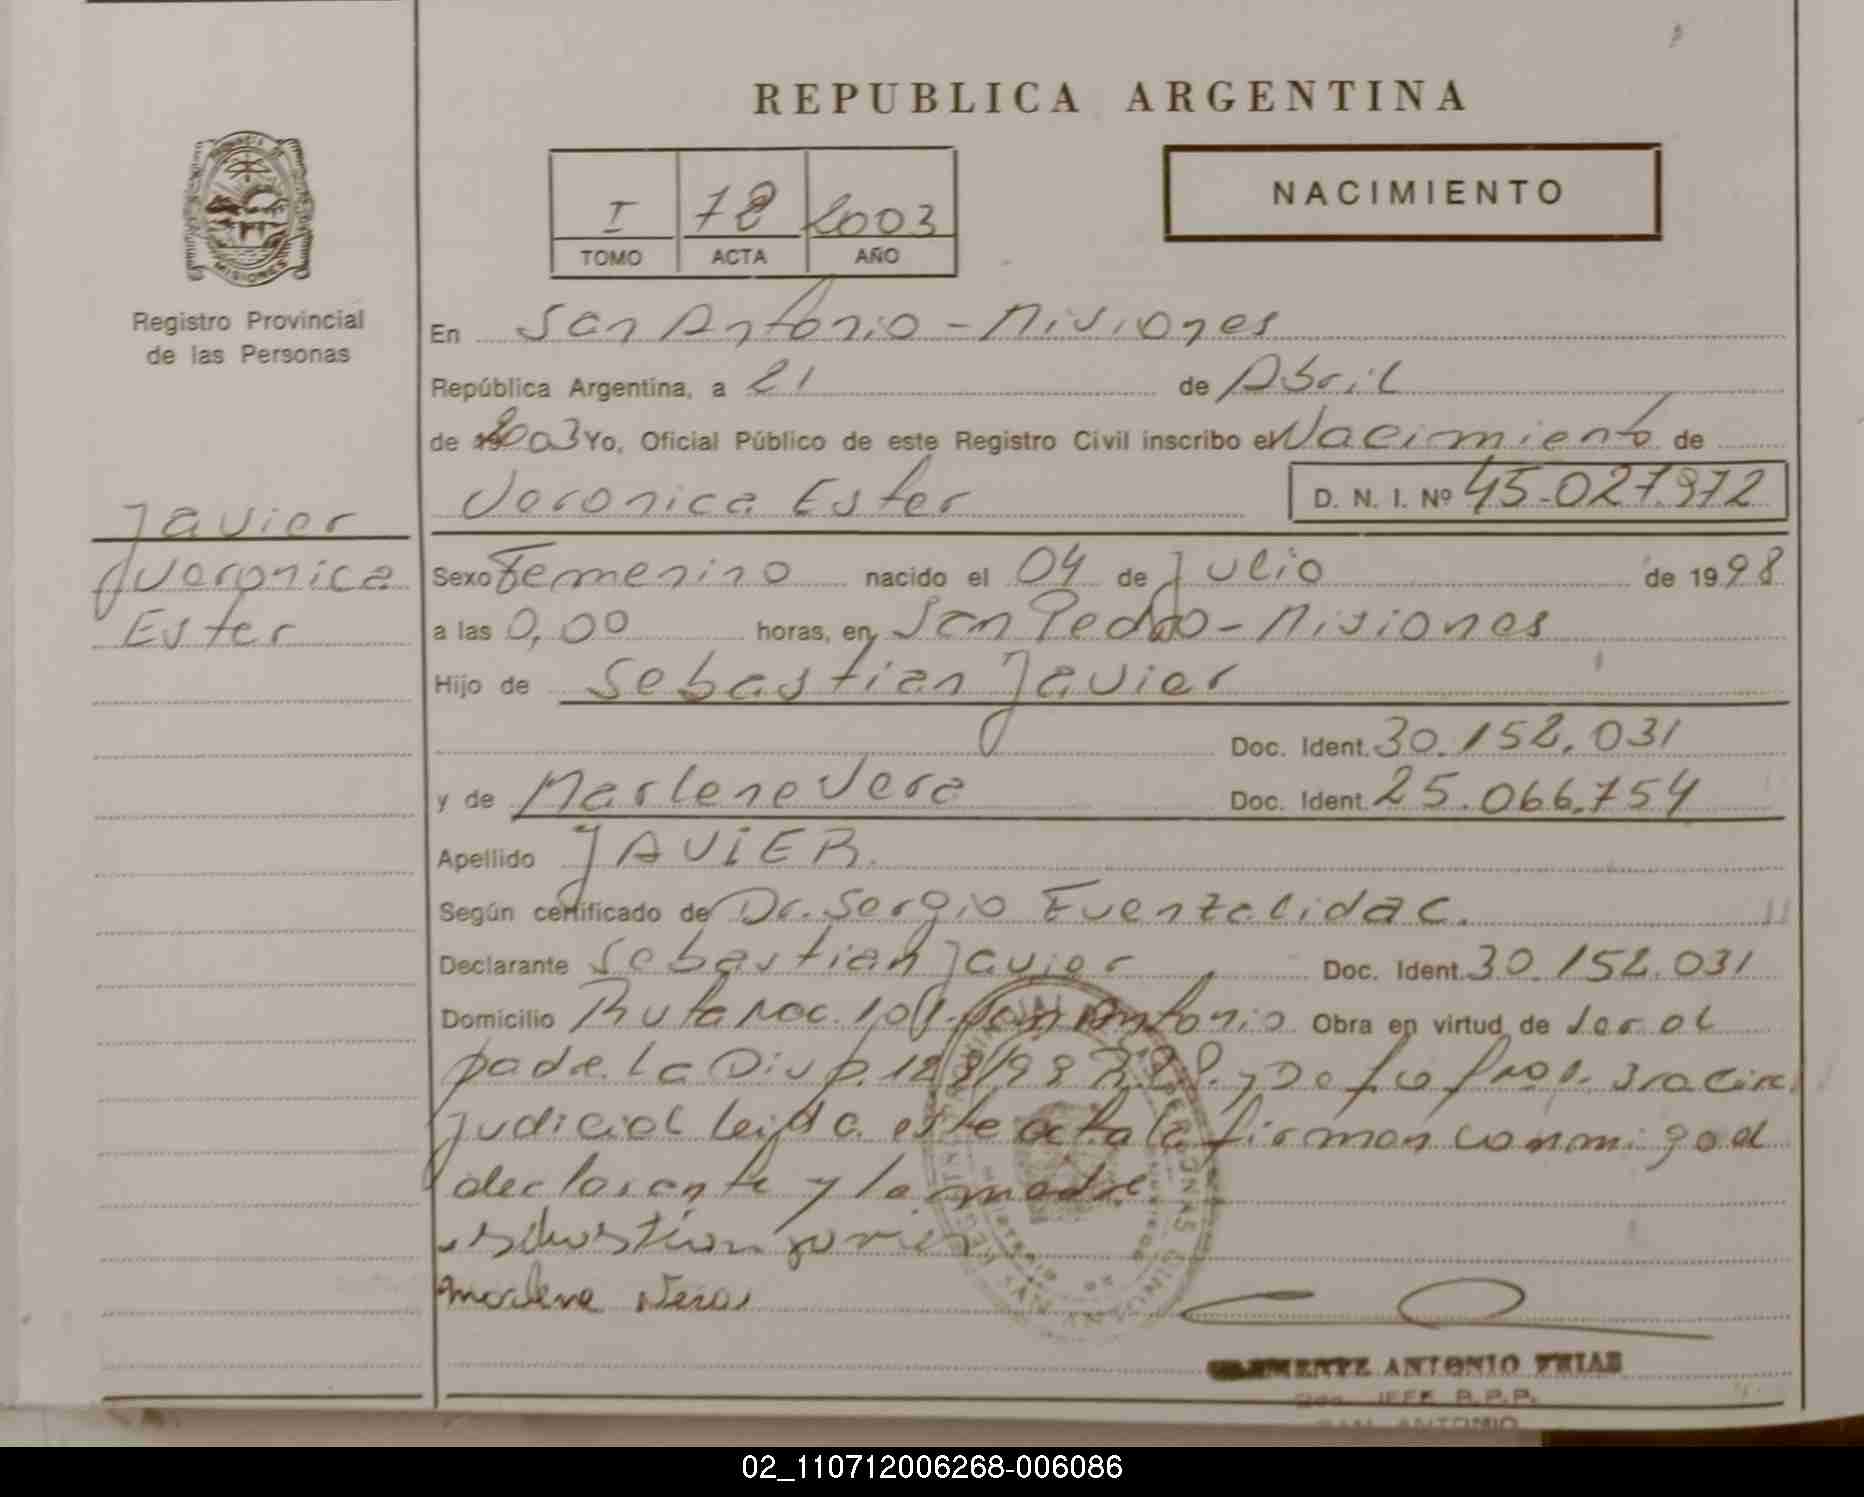 REPUBLICA ARGENTINA
I 78 2003
TOMO ACTA AÑO
NACIMIENTO
MISIONES
Registro Provincial
de las Personas
Javier
Veronica
Ester
En San Antonio - Misiones
República Argentina, a 21 de Abril
de 2003 Yo, Oficial Público de este Registro Civil inscribo el Nacimiento de
Veronica Ester D. N. I. Nº 45.027.972
Sexo Femenino nacido el 04 de Julio de 1998
a las 0,00 horas, en San Pedro - Misiones
Hijo de Sebastian Javier
Doc. Ident. 30.152.031
y de Marlene Vera Doc. Ident. 25.066.754
Apellido JAVIER.
Según certificado de Dr. Sergio Fuenzalida C.
Declarante Sebastian Javier Doc. Ident. 30.152.031
Domicilio Ruta Nac. 101. San Antonio Obra en virtud de ser el
padre. La Disp.
judicial leida este acta la firman conmigo el
declarante y la madre
sebastian javier
marlene Vera
CLEMENTE ANTONIO FRIAS
JEFE R.P.P.
SAN ANTONIO
02_110712006268-006086